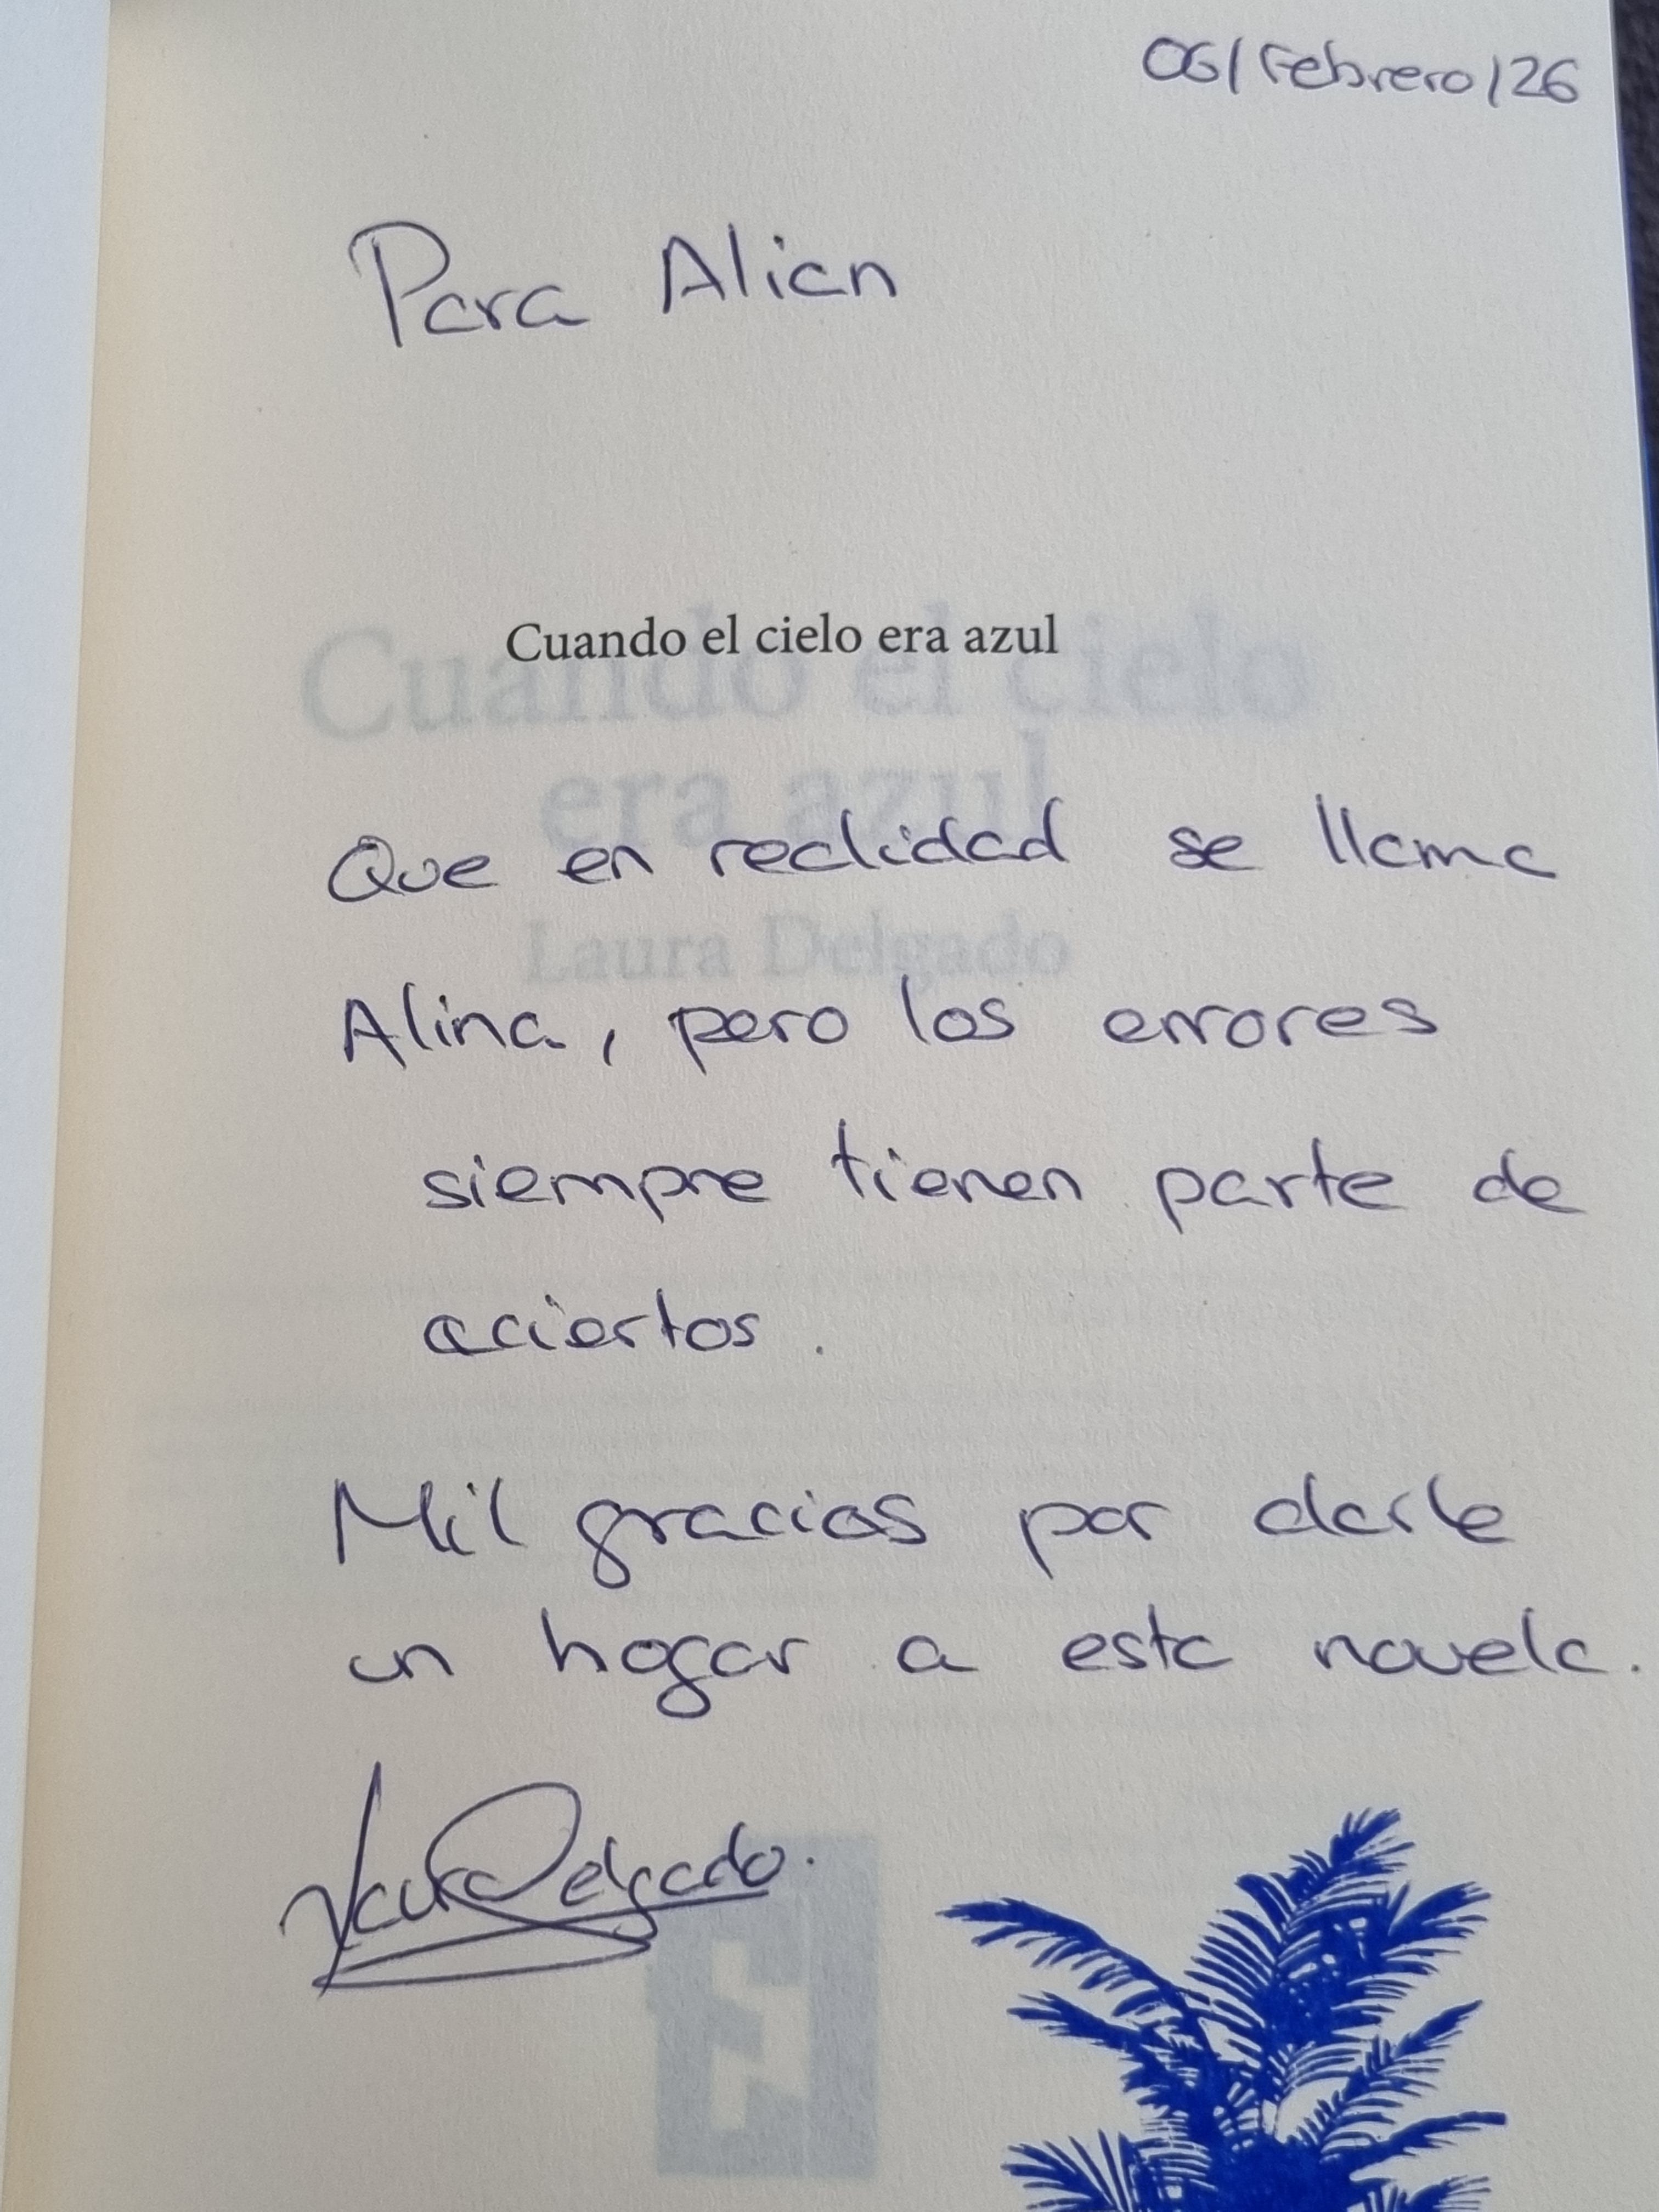 06/Febrero/26
Para Alian
Cuando el cielo era azul
Cuando el cielo
era azul
Que en realidad se llama
Laura Delgado
Alina, pero los errores
siempre tienen parte de
aciertos.
Mil gracias por darle
un hogar a esta novela.
Laura Delgado.